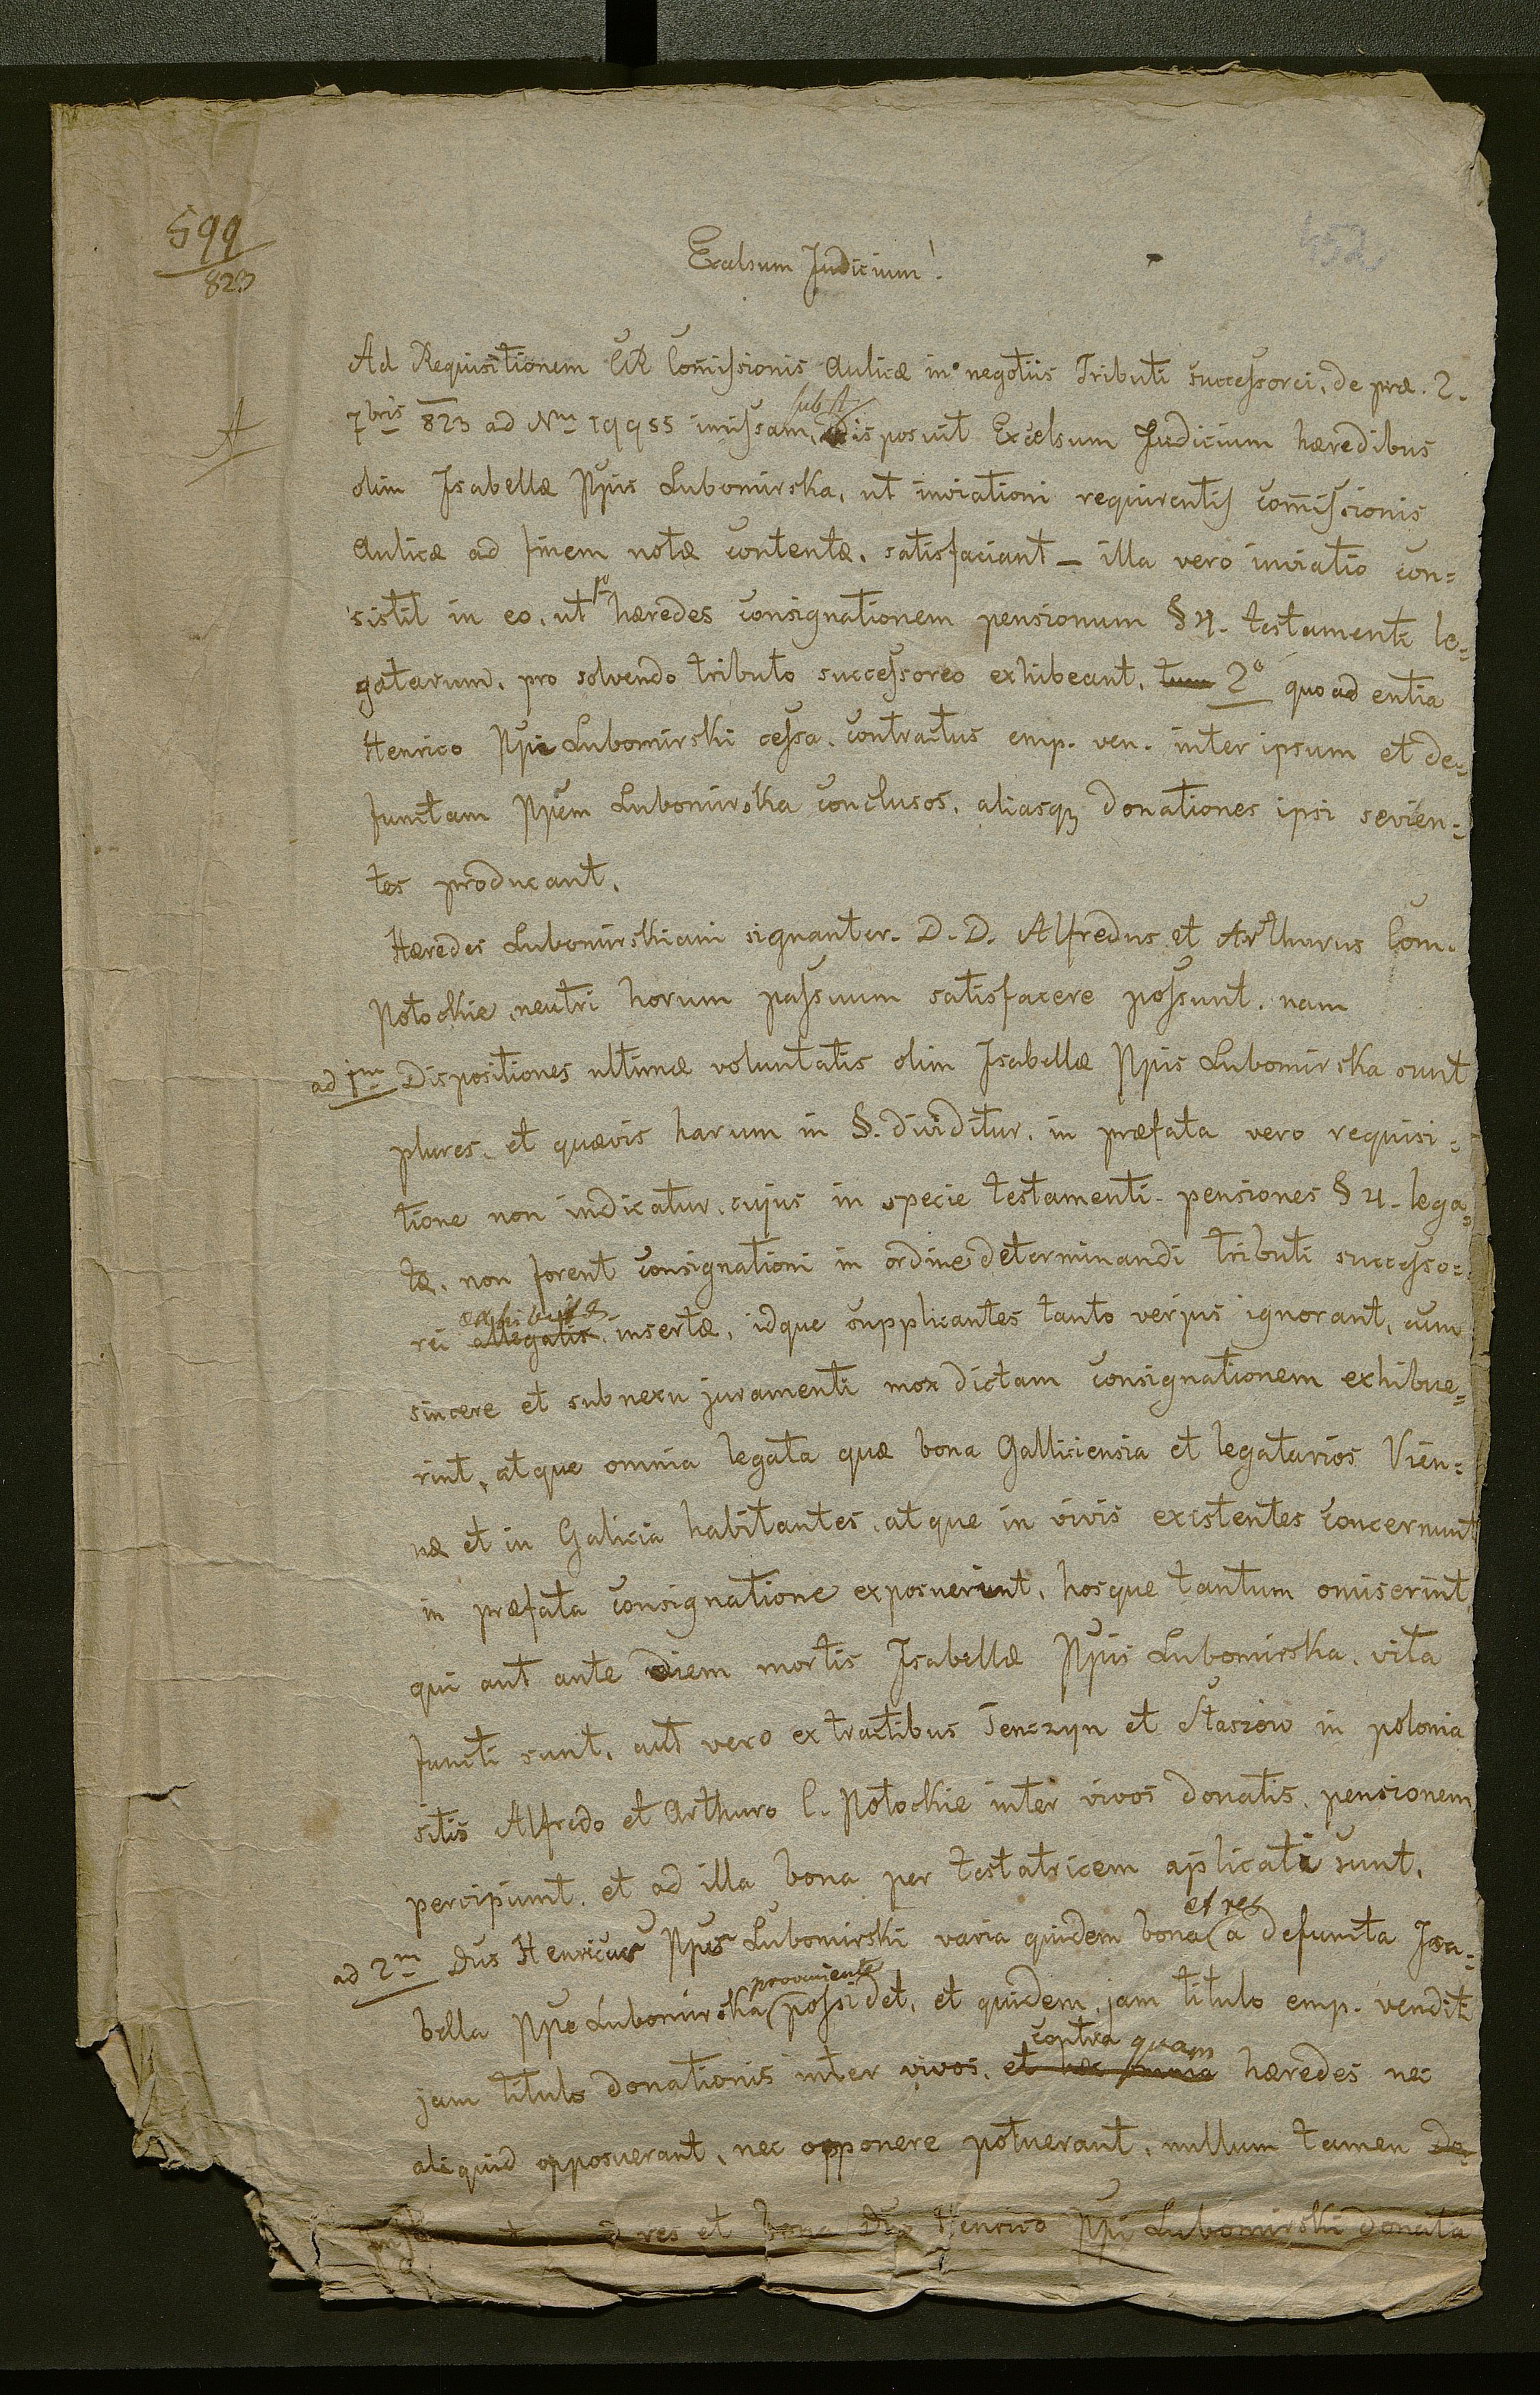 599
823
452
Excelsum Judicium!
Ad Requisitionem CR Com̃issionis Aulicæ in negotiis Tributi successorei, de præ. 2.
sub A
7bris 823 ad Num 19955 imissam, disposuit Excelsum Judicium hæredibus
A
olim Isabellæ Ppis Lubomirska, ut inviationi requirentis com̃issionis
Aulicæ ad finem notæ contentæ, satisfaciant – illa vero inviatio con=
sistit in eo, ut 1o hæredes consignationem pensionum § 4. testamenti le=
gatarum, pro solvendo tributo successoreo exhibeant, tum 2o quoad entia
Henrico Ppi Lubomirski cessa, contractus emp. ven. inter ipsum et de=
functam Ppem Lubomirska conclusos, aliasq donationes ipsi servien=
tes producant.
Hæredes Lubomirskiani signanter. D.D. Alfredus et Arthurus Com.
Potockie, neutri horum passuum satisfacere possunt, nam
ad 1m Dispositiones ultimæ voluntatis olim Isabellæ Ppis Lubomirska sunt
plures, et quævis harum in §. dividitur, in præfata vero requisi=
tione non indicatur, cujus in specie testamenti pensiones § 4. lega=
tæ, non forent consignationi in ordine determinandi tributi successo=
exhibitæ
rei allegatis, insertæ, idque supplicantes tanto verjus ignorant, cum
sincere et sub nexu juramenti mox dictam consignationem exhibue=
rint, atque omnia legata quæ bona Galliciensia et legatarios Vien=
næ et in Galicia habitantes, atque in vivis existentes concernunt
in præfata consignatione exposuerint, hosque tantum omiserint
qui aut ante diem mortis Isabellæ Ppis Lubomirska, vita
functi sunt, aut vero ex tractibus Tenczyn et Staszow in polonia
sitis Alfredo et Arthuro C. Potockie inter vivos donatis, pensionem
percipiunt, et ad illa bona per testatricem aplicati sunt.
et res
ad 2m Dus Henricus Pps Lubomirski varia quidem bona a defuncta Isa=
provenientes
bella Ppe Lubomirska possidet, et quidem, jam titulo emp. venditi
contra quam
jam titulo donationis inter vivos, et hæc omnia hæredes nec
aliquid opposuerant, nec opponere potuerant, nullum tamen de
res et bona Do Henrico Ppi Lubomirski donata